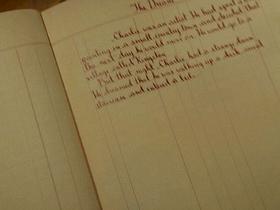 The Dream
Charlie was an artist. He had spent a day
painting in a small country town and decided that
the next day he would move on. He would go to a
village called Kingston.
But that night, Charlie had a strange dream.
He dreamed that he was walking up a dark, small
staircase and entered a